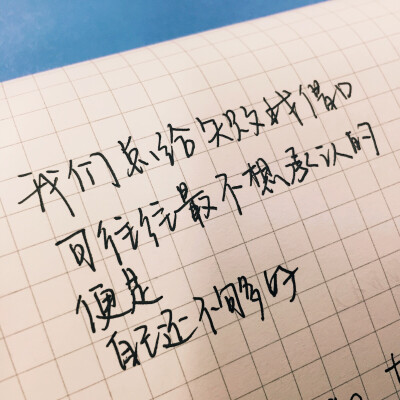 我们总给失败找借口
可往往最不想承认的
便是
自己还不够好